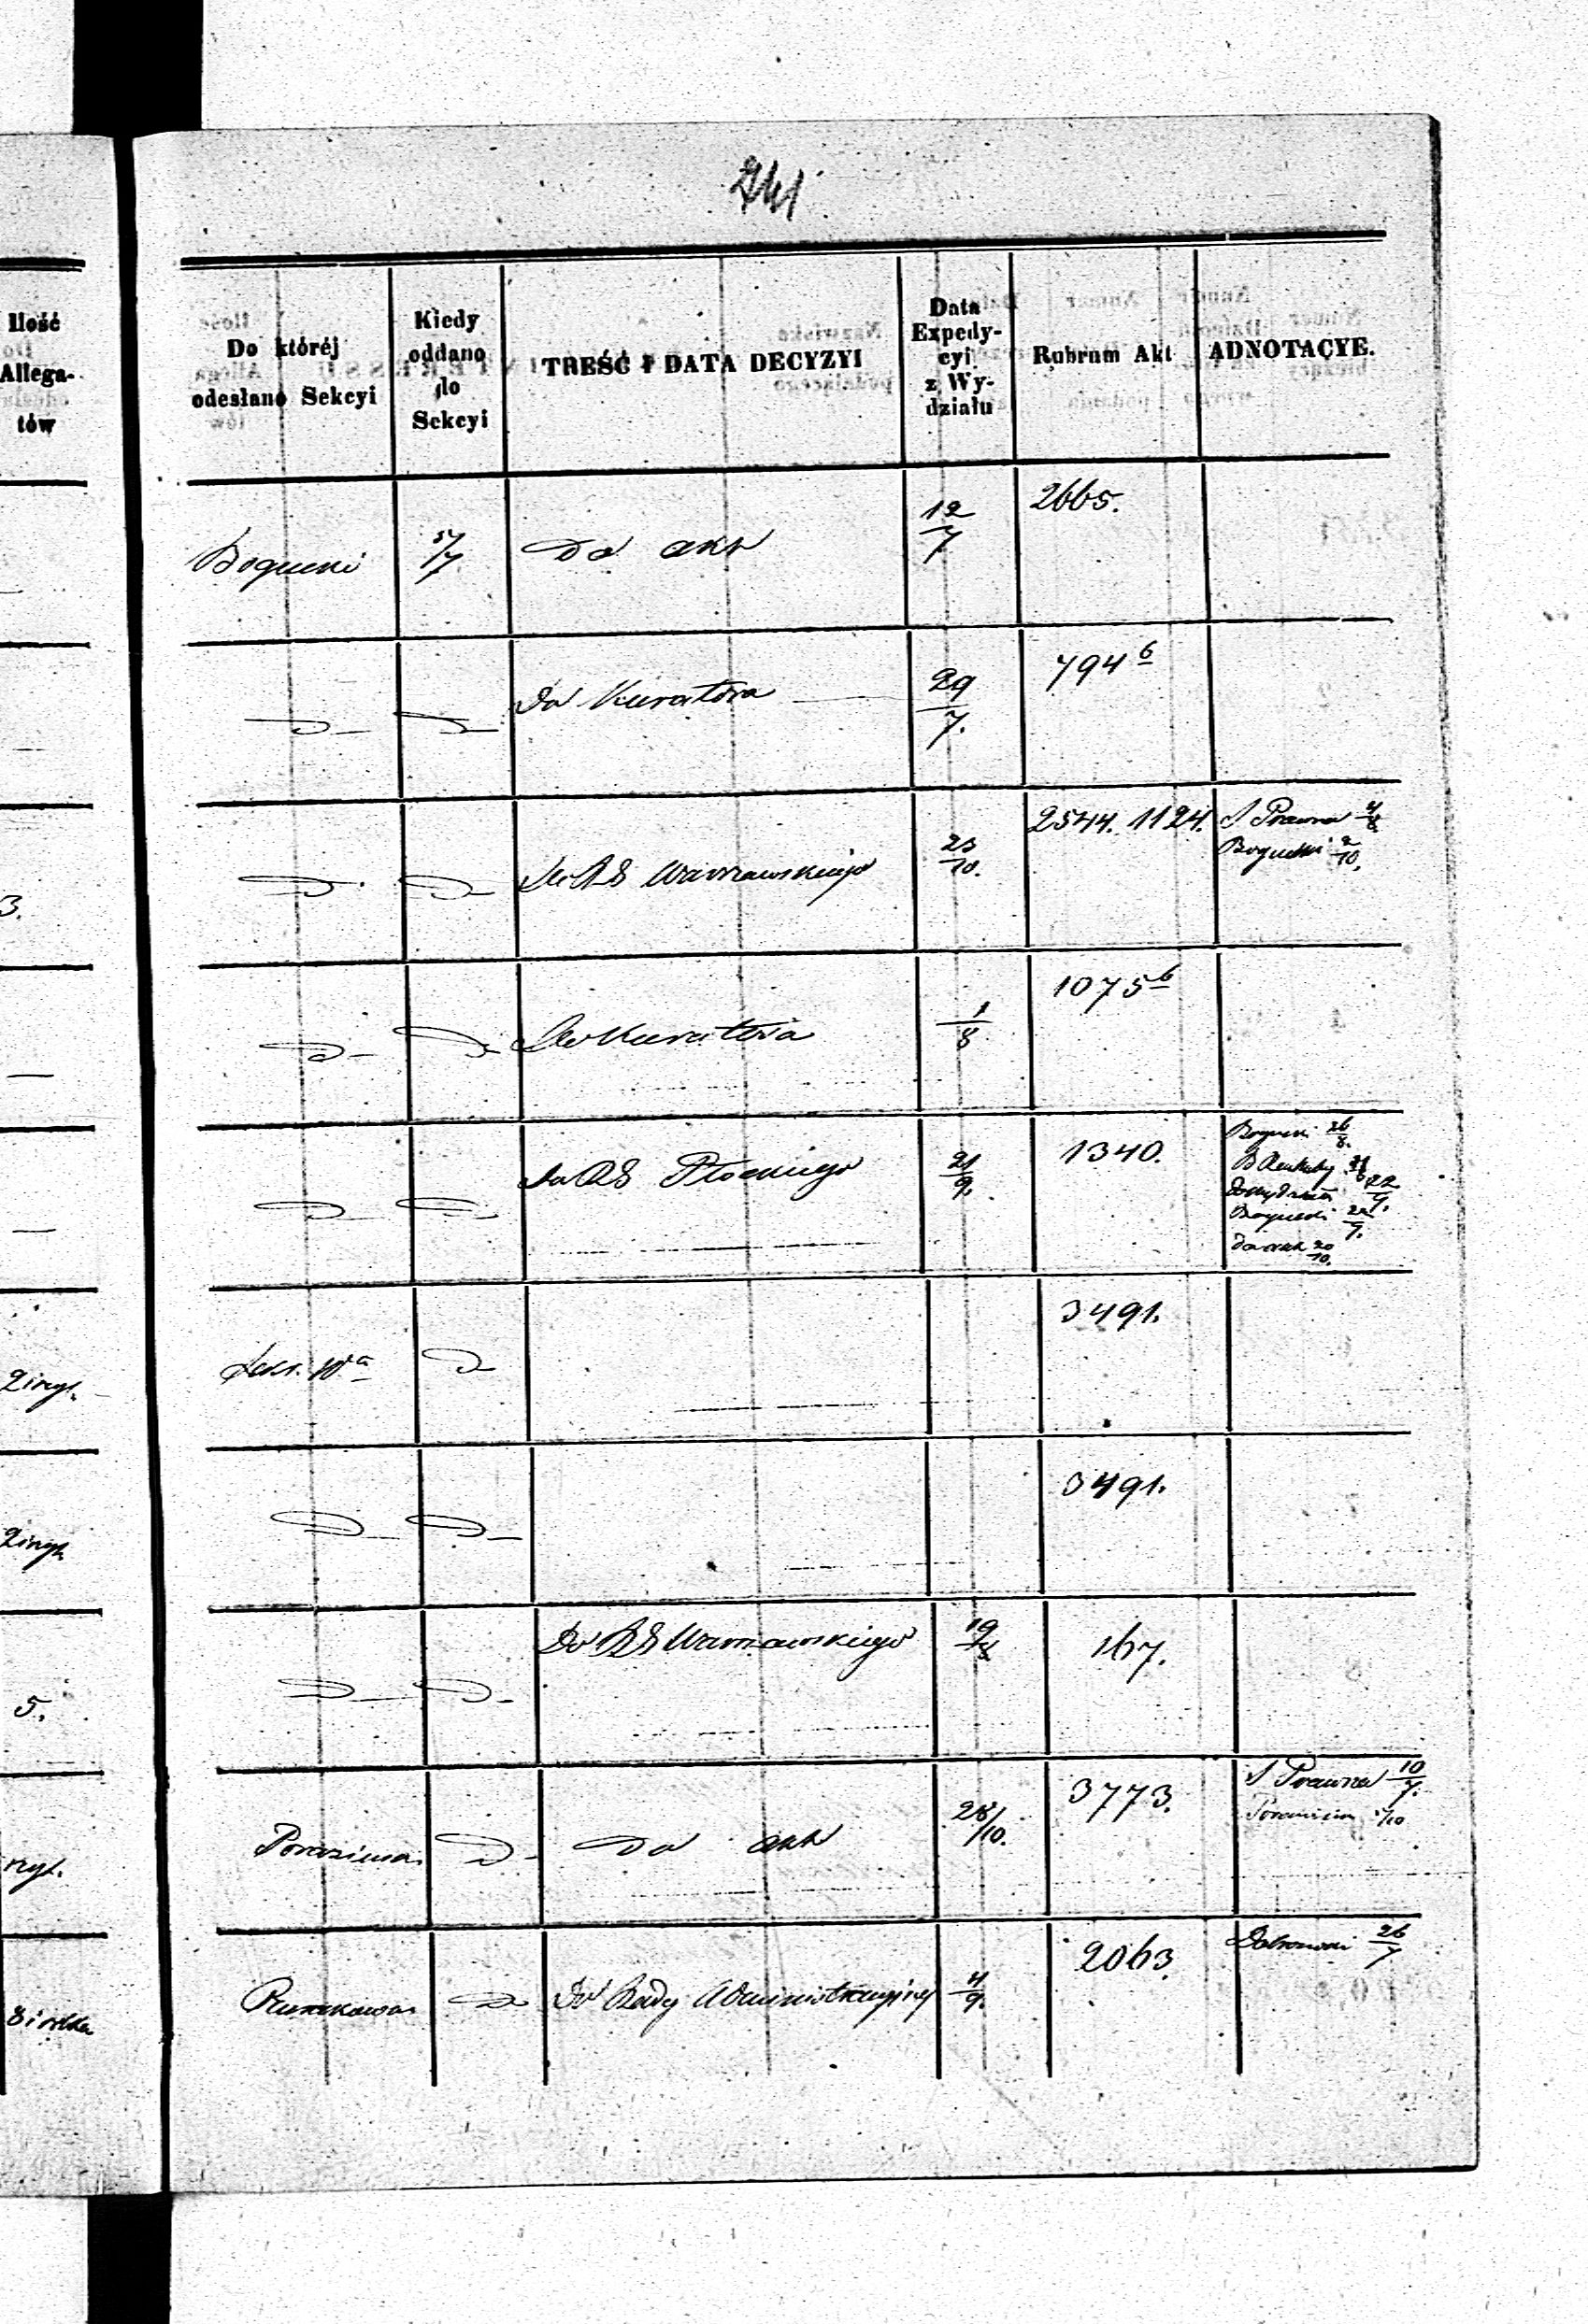 241
Ilość
Allega-
tów
Do któréj
odesłano Sekcyi
Kiedy
oddano
do
Sekcyi
TREŚĆ I DATA DECYZYI
Data
Expedy-
cyi
z Wy-
działu
Rubrum Akt
ADNOTACYE.
Bogucki 5/7 Do akt 12/7 2665.
Do Kuratora 29/7. 794 6
3. Do RS Warszawskiego 23/10. 2544. 1124. S Prawna 4/8
Bogucki 2/10.
Do Kuratora 1/8 1075 6
Do RS Płockiego 21/9. 1340. Bogucki 26/8.
22/9.
Bogucki 22/9.
20/10.
Seks. 3491.
3491.
5. Do RS Warszawskiego 19/8 167.
Do akt 28/10. 3773. S Prawna 10/7.
Do Rady Administracyjnej 4/9. 2063. 26/7